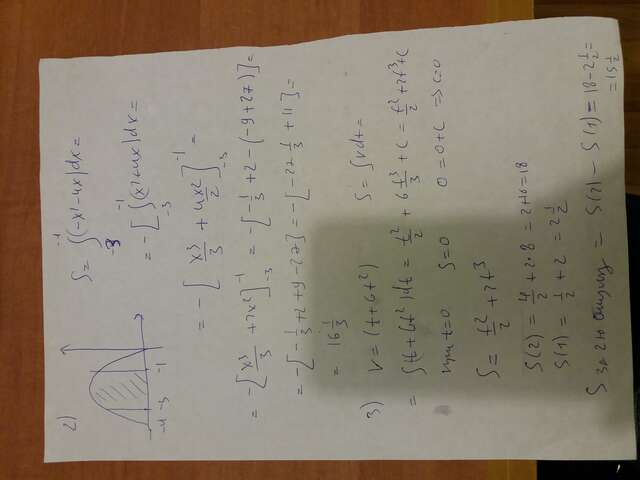 2)
-4 -3 -1
S = ∫₋₃⁻¹ (-x² - 4x) dx =
= -[ ∫₋₃⁻¹ (x² + 4x) dx =
= -[ x³/3 + 4x²/2 ]₋₃⁻¹ =
= -[ x³/3 + 2x² ]₋₃⁻¹ = -[ -1/3 + 2 - (-9 + 27) ] =
= -[ -1/3 + 2 + 9 - 27 ] = -[ -27 1/3 + 11 ] =
= 16 1/3
3) V = (t + 6t²) S = ∫ v dt =
= ∫ (t + 6t²) dt = t²/2 + 6 t³/3 + c = t²/2 + 2t³ + c
при t = 0 S = 0 0 = 0 + c => c = 0
S = t²/2 + 2t³
S(2) = 4/2 + 2·8 = 2 + 16 = 18
S(1) = 1/2 + 2 = 2 1/2
S за 2ю секунду = S(2) - S(1) = 18 - 2 1/2 =
= 15 1/2